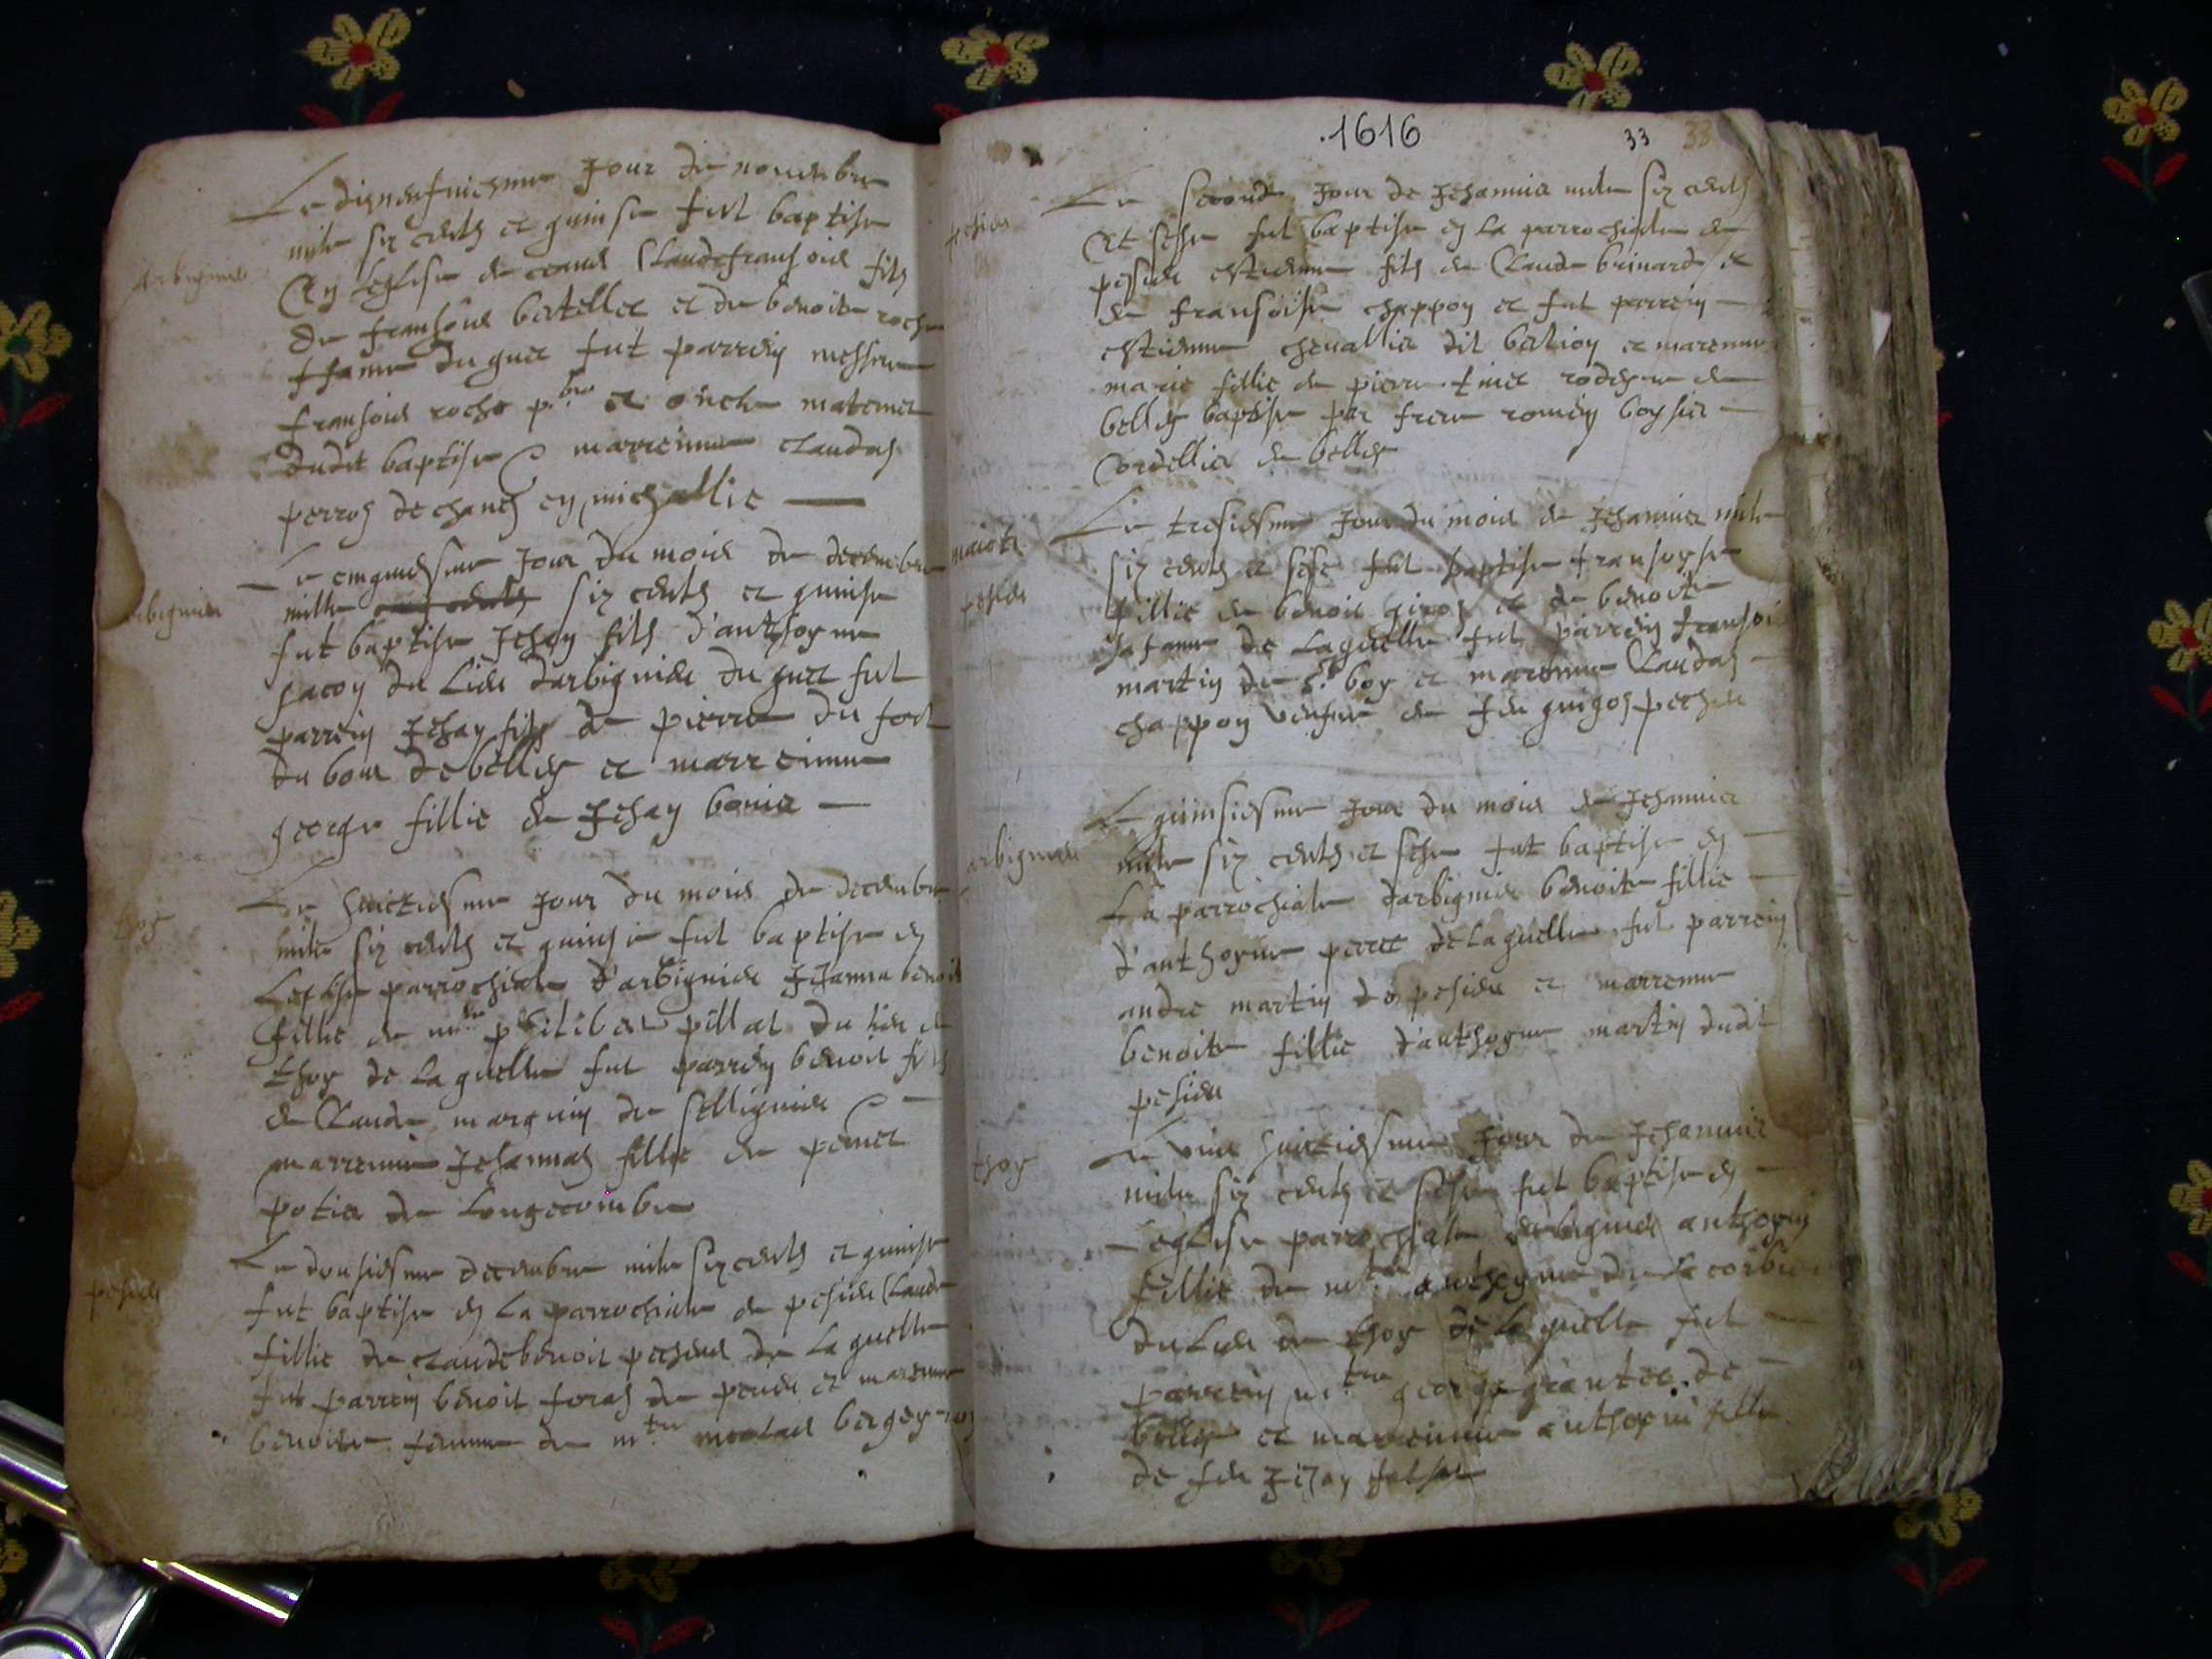 Le dixneufuiesme Jour de nouembre
mille six cents et quinse fut baptise
En leglise de ceans Claudefransois fils
de fransois bertellet et de benoite roche
du guet fut parrein messire
fransois roche p.bre et oncle maternel
dudit baptise marreinne Claudaz
perroz de chanez en michallie
arbignieu
Le cinquiesme Jour du mois de decembre
mille six cents et quinse
fut baptise Jehan fils d'anthoyne
jacon du lieu darbignieu du quel fut
parrein Jehan fils de pierre du fort
du bour de belley et marreinne
george fillie de Jehan bonier
arbignieu
Le huictiesme Jour du mois de decembre
mille six cents et quinse fut baptise en
leglise parrochiale d'arbignieu Jehanna benoite
fillie de me philibert pillat du lieu de
thoy de laquelle fut parrein benoit fils
de Claude marguin de sillignieu
marreine Jehannaz fillie de
potier de longecombe
thoy
Le dousiesme decembre mille six cents et quinse
fut baptise en la parrochiale de pesieu Claude
fillie de claude benoit pesieu de laquelle
fut parrein benoit foraz de et marenne
benoite femme de m.tre
pesieu
.1616
33 33
pesieu
Le second Jour de Jehanuier mille six cents
Et sese fut baptise en la parrochiale de
pesieu estienne fils de Claude brinard et
de fransoise chappon et fut parrein
estienne cheuallier dit berlion et marenne
marie fillie de pierre de
belley baptise par frere romein boysier
Cordellier de belley
Le tresiesme Jour du mois de Jehanuier mille
six cents et sese fut baptise fransoyse
fillie de benoit giroz et de benoite
sa fame de laquelle fut parrein fransois
martin de s.t boy et marenne Claudaz
chappon veufue de feu guigoz pesieu
pesieu
Le quinsiesme Jour du mois de Jehanuier
mille six cents et sese fut baptise en
la parrochiale darbignieu benoite fillie
d'anthoyne perret de laquelle fut parrein
andre martin de pesieu et marrenne
benoite fillie d'anthoyne martin dudit
pesieu
arbignieu
Le vint huictiesme Jour de Jehanuier
mille six cents et sese fut baptise en
leglise parrochiale darbignieu anthoyni
fillie de me anthoyne de la corbiere
du lieu de thoy de laquelle fut
parrein m.tre george grantet de
belley et marreinne anthoyni fillie
de feu Jehan
thoy